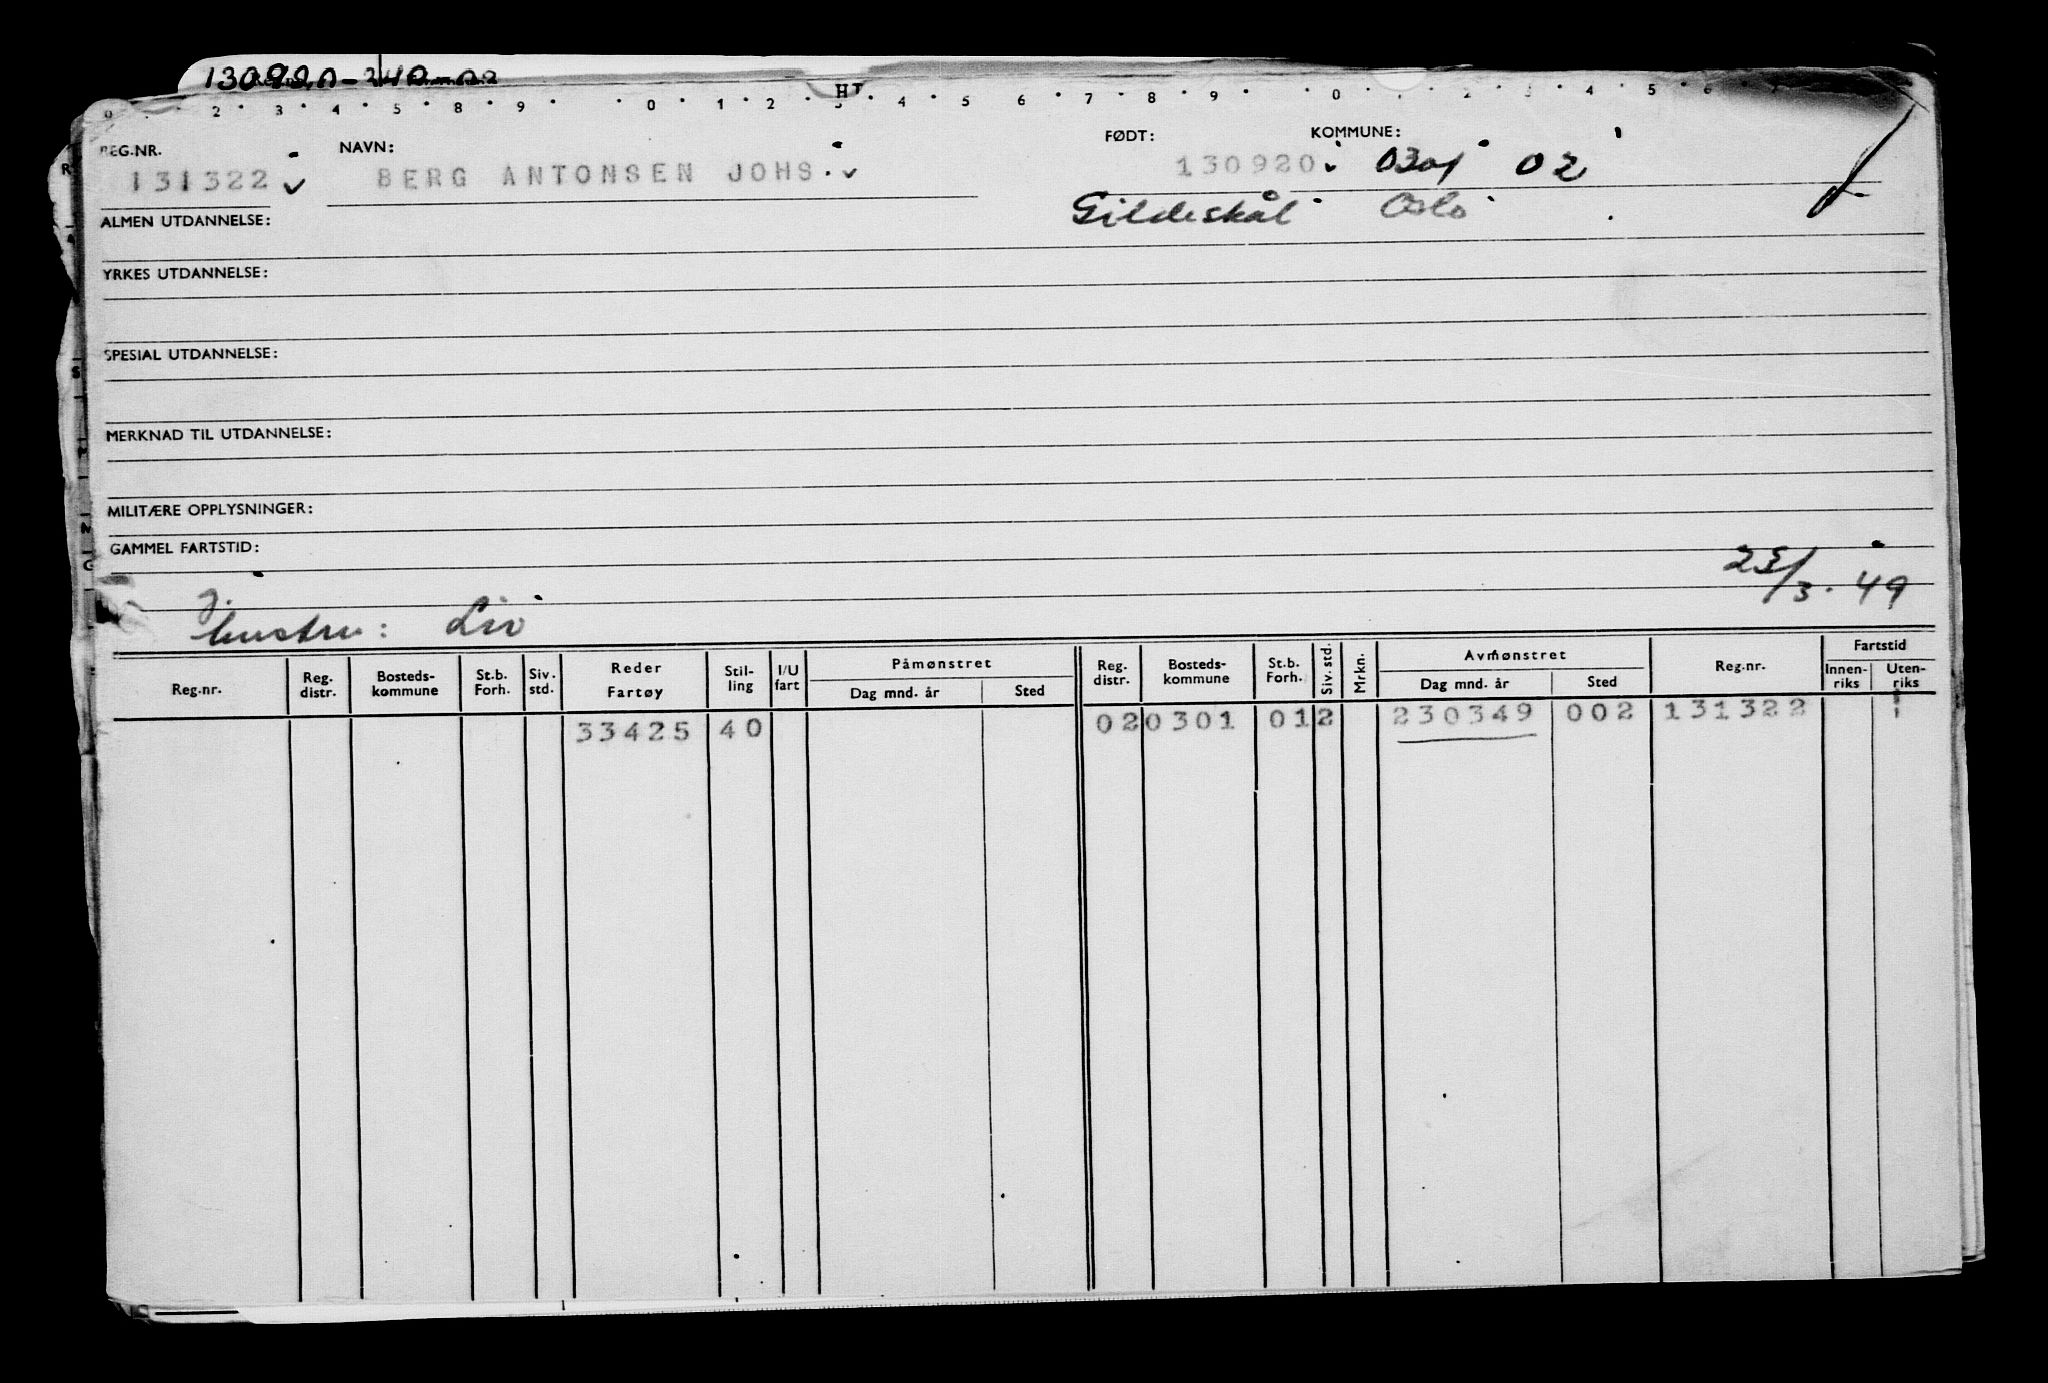 HI
0 2 3 4 5 8 9 0 1 2 3 4 5 6 7 8 9 0 2 3 4 5 6
REG.NR. NAVN: FØDT: KOMMUNE:
131322 BERG ANTONSEN JOHS. 130920 0301 02
ALMEN UTDANNELSE: Gildeskål Oslo
YRKES UTDANNELSE:
SPESIAL UTDANNELSE:
MERKNAD TIL UTDANNELSE:
MILITÆRE OPPLYSNINGER:
GAMMEL FARTSTID:
23/3.49
hustru: Liv
Reg.nr. Reg. distr. Bosteds-kommune St.b. Forh. Siv. std. Reder Fartøy Stil-ling I/U fart Påmønstret Dag mnd. år Sted Reg. distr. Bosteds-kommune St.b. Forh. Siv. std. Mrkn. Avmønstret Dag mnd. år Sted Reg.nr. Fartstid Innen-riks Uten-riks
33425 40 02 0301 01 2 230349 002 131322